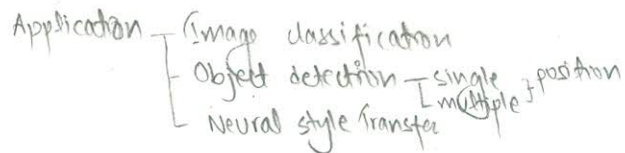 Application - Image classification
- Object detection - single
multiple } position
- Neural style Transfer